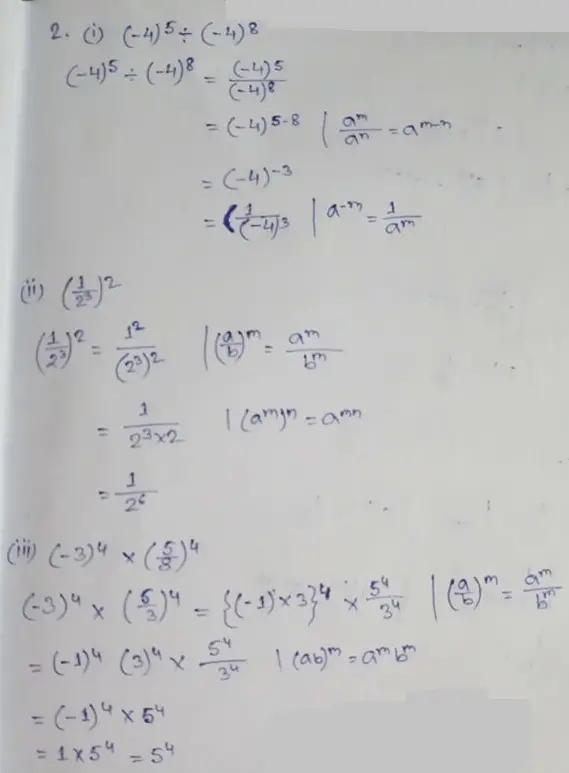 2. (i) (-4)^5 ÷ (-4)^8
(-4)^5 ÷ (-4)^8 = (-4)^5/(-4)^8
= (-4)^5-8 | a^m/a^n = a^m-n
= (-4)^-3
= (1/(-4)^3 | a^-m = 1/a^m
(ii) (1/2^3)^2
(1/2^3)^2 = 1^2/(2^3)^2 | (a/b)^m = a^m/b^m
= 1/2^3×2 | (a^m)^n = a^mn
= 1/2^6
(iii) (-3)^4 × (5/3)^4
(-3)^4 × (5/3)^4 = {(-1)×3}^4 × 5^4/3^4 | (a/b)^m = a^m/b^m
= (-1)^4 (3)^4 × 5^4/3^4 | (ab)^m = a^m b^m
= (-1)^4 × 5^4
= 1×5^4 = 5^4